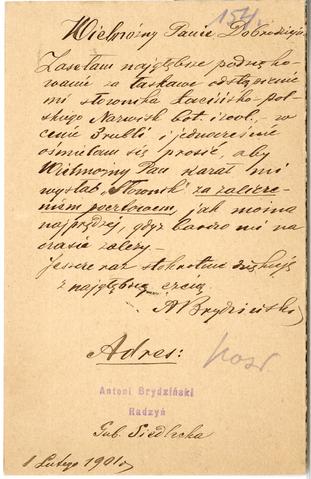 154.
Wielmożny Panie Dobrodzieju
Zasyłam najgłębsze podzięko-
wanie za łaskawe odstąpienie
mi słownika Łacińsko-pol-
skiego Nazwisk bot. i zool., w
cenie 3 rubli i jednocześnie
ośmielam się prosić, aby
Wielmożny Pan kazał mi
wysłać "Słownik" za zalicze-
niem pocztowem, jak można
najprędzej, gdyż bardzo mi na
czasie zależy.-
Jeszcze raz stokrotne dziękuję
z najgłębszą czcią
A Brydziński
Adres:
Antoni Brydziński
Radzyń
Gub. Siedlecka
1 Lutego 1901 r